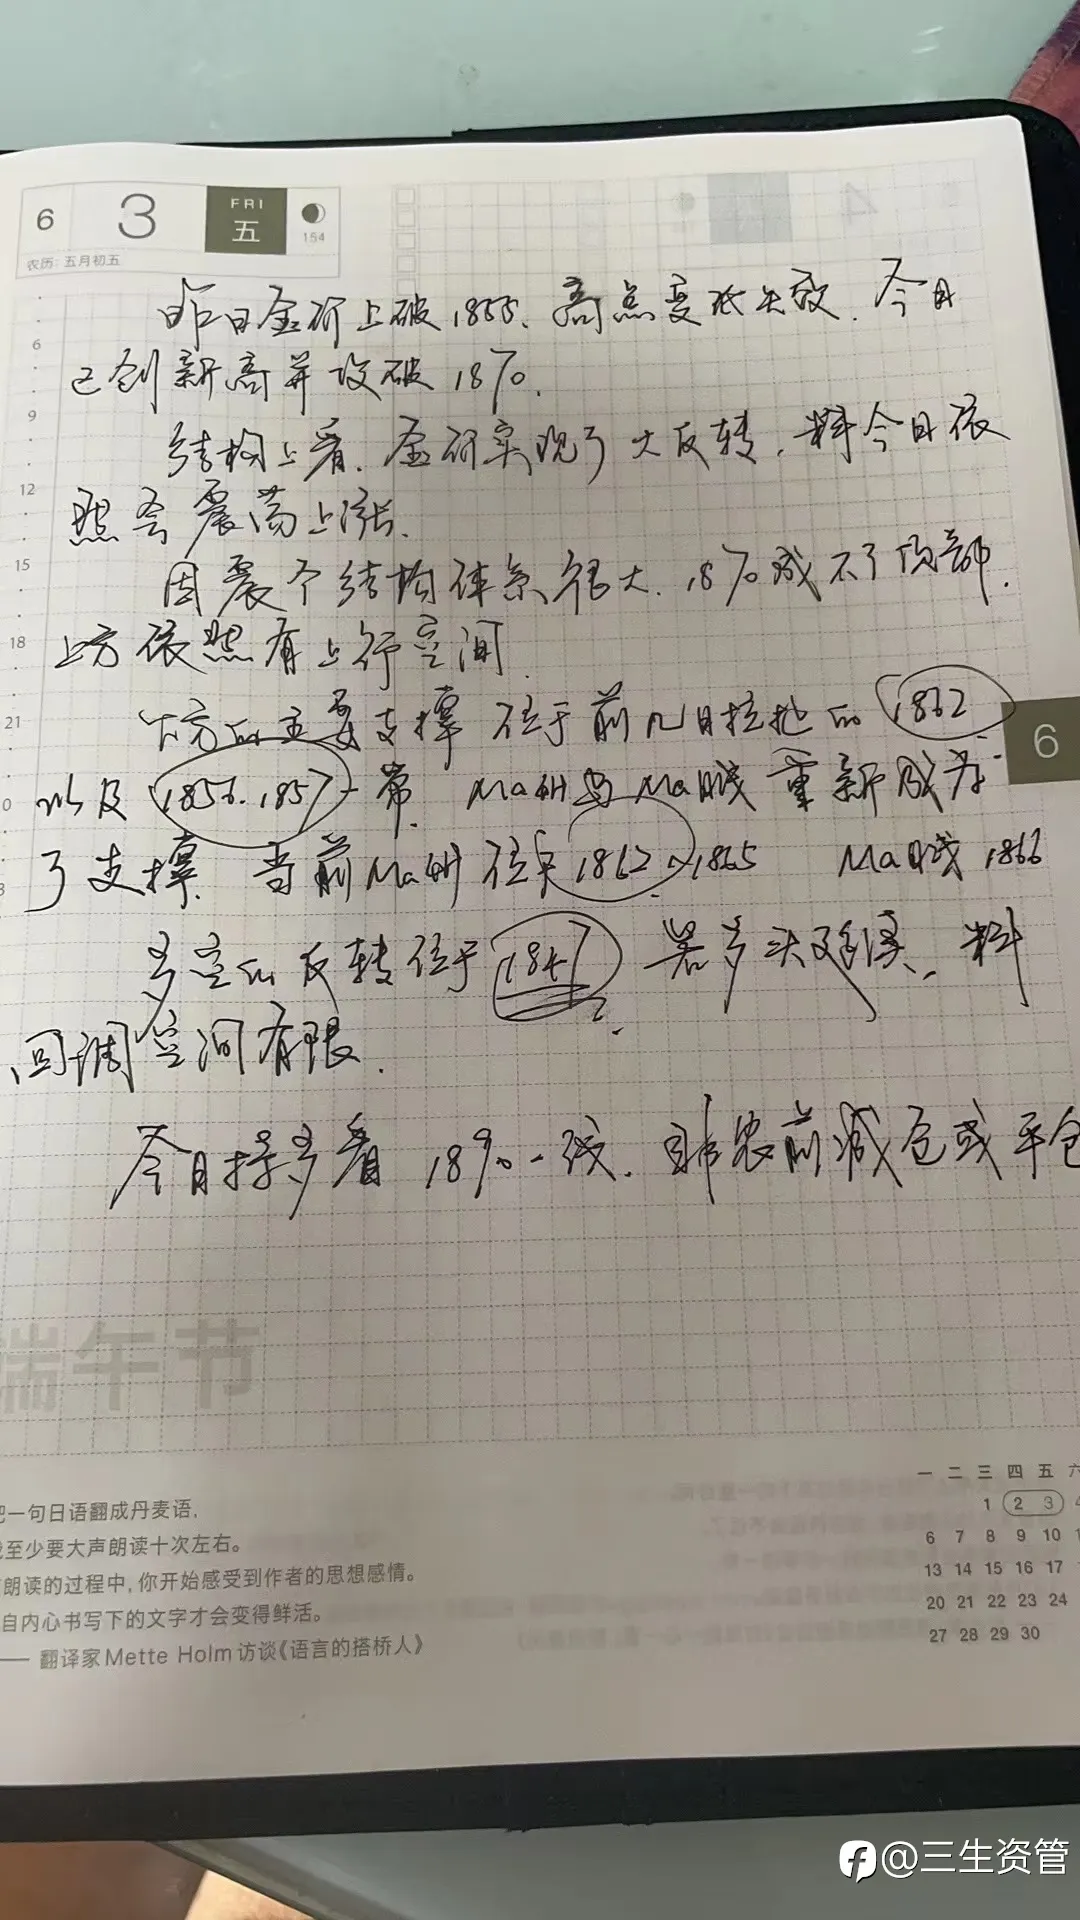 6 3 FRI 五 154
农历: 五月初五
昨日金价上破1855. 高点变低失效. 今日
已创新高并攻破1870.
结构上看. 金价实现了大反转. 料今日依
然会震荡上涨.
因震个结构体系很大. 1870成不了顶部.
上方依然有上行空间.
下方的主要支撑位于前几日拉扯的1862
以及1856.1857一带. Ma4H与Ma日线重新成为
了支撑. 当前Ma4H位于1862~1865 Ma日线1866
多空的反转位于1847 若多头延续, 料
回调空间有限.
今日持多看1890一线. 非农前减仓或平仓
6
9
12
15
18
21
6
端午节
一句日语翻成丹麦语,
至少要大声朗读十次左右。
朗读的过程中,你开始感受到作者的思想感情。
自内心书写下的文字才会变得鲜活。
—— 翻译家Mette Holm访谈《语言的搭桥人》
一 二 三 四 五 六
1 2 3 4
6 7 8 9 10
13 14 15 16 17
20 21 22 23 24
27 28 29 30
@三生资管